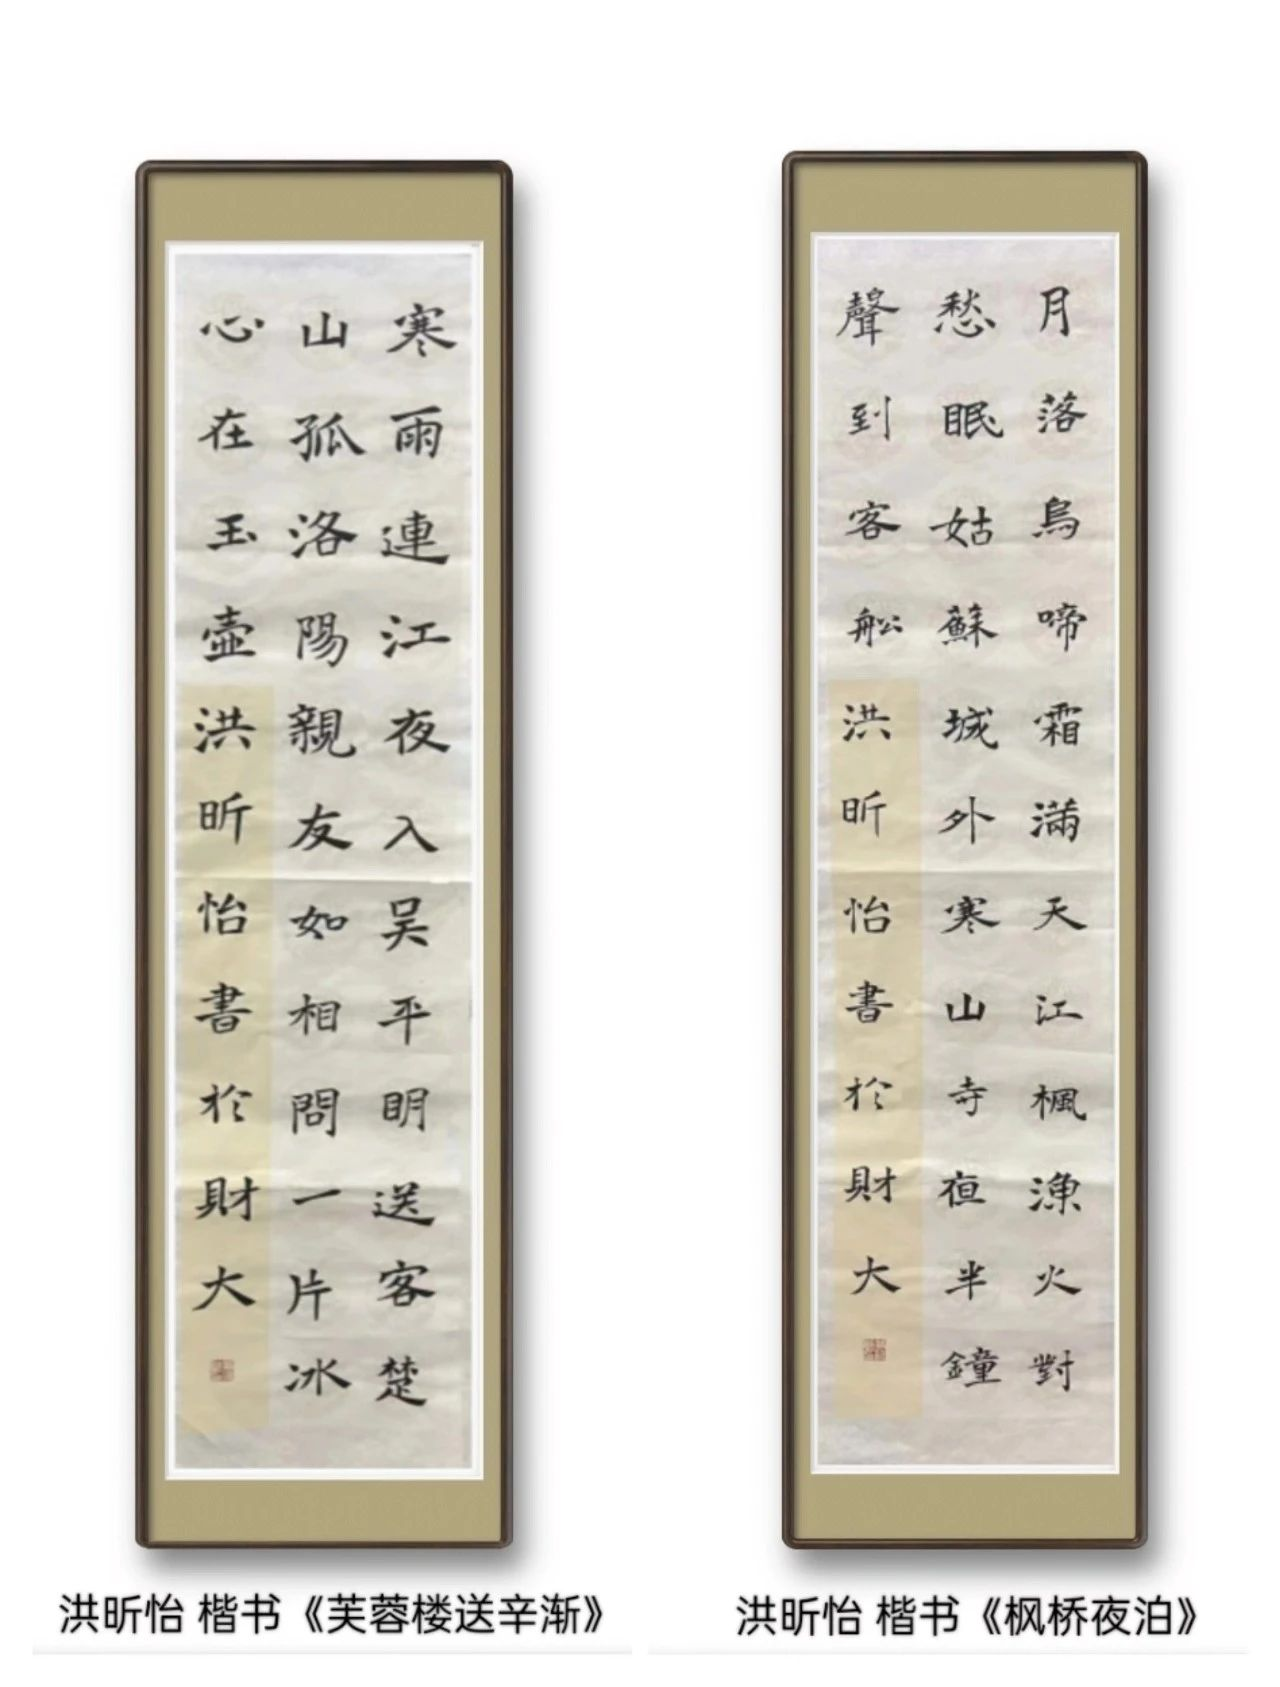 寒雨連江夜入吴平眀送客楚
山孤洛陽親友如相問一片冰
心在玉壺洪昕怡書於財大
洪昕怡 楷书《芙蓉楼送辛渐》
月落烏啼霜滿天江楓漁火對
愁眠姑蘇城外寒山寺亱半鐘
聲到客舩洪昕怡書於財大
洪昕怡 楷书《枫桥夜泊》